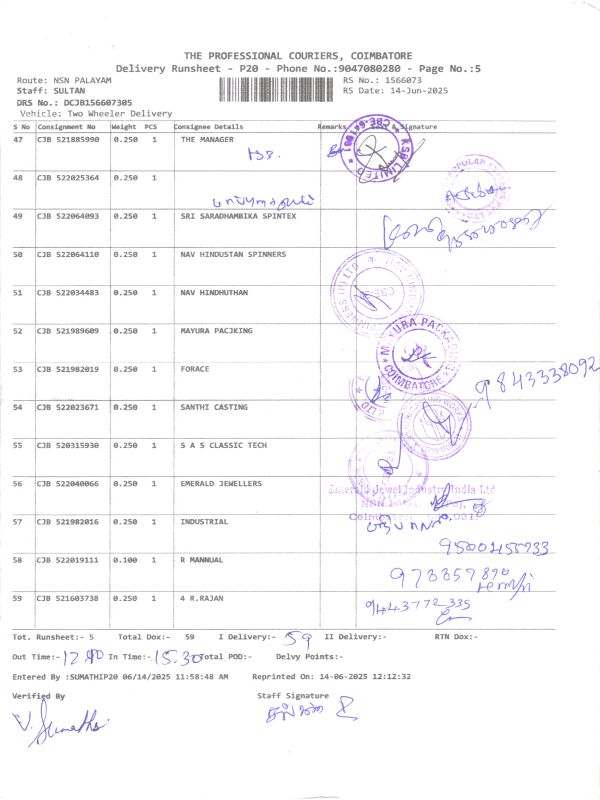 THE PROFESSIONAL COURIERS, COIMBATORE
Delivery Runsheet - P20 - Phone No.:9047080280 - Page No.:5
Route: NSN PALAYAM RS No.: 1566073
Staff: SULTAN RS Date: 14-Jun-2025
DRS No.: DCJB156607305
Vehicle: Two Wheeler Delivery
S No Consignment No Weight PCS Consignee Details Remarks & Signature
47 CJB 521885990 0.250 1 THE MANAGER
KSB LIMITED CBE-641001
48 CJB 522025364 0.250 1
49 CJB 522064093 0.250 1 SRI SARADHAMBIKA SPINTEX
50 CJB 522064110 0.250 1 NAV HINDUSTAN SPINNERS
51 CJB 522034483 0.250 1 NAV HINDHUTHAN
52 CJB 521989609 0.250 1 MAYURA PACJKING
COIMBATORE
53 CJB 521982019 0.250 1 FORACE
9843338092
54 CJB 522023671 0.250 1 SANTHI CASTING
55 CJB 520315930 0.250 1 S A S CLASSIC TECH
56 CJB 522040066 0.250 1 EMERALD JEWELLERS
Emerald Jewel Industry India Ltd
57 CJB 521982016 0.250 1 INDUSTRIAL
58 CJB 522019111 0.100 1 R MANNUAL
59 CJB 521603738 0.250 1 4 R.RAJAN
9443772335
Tot. Runsheet:- 5 Total Dox:- 59 I Delivery:- 59 II Delivery:- RTN Dox:-
Out Time:- 12.40 In Time:- 15.30 Total POD:- Delvy Points:-
Entered By :SUMATHIP20 06/14/2025 11:58:48 AM Reprinted On: 14-06-2025 12:12:32
Verified By Staff Signature
V. Sumathi